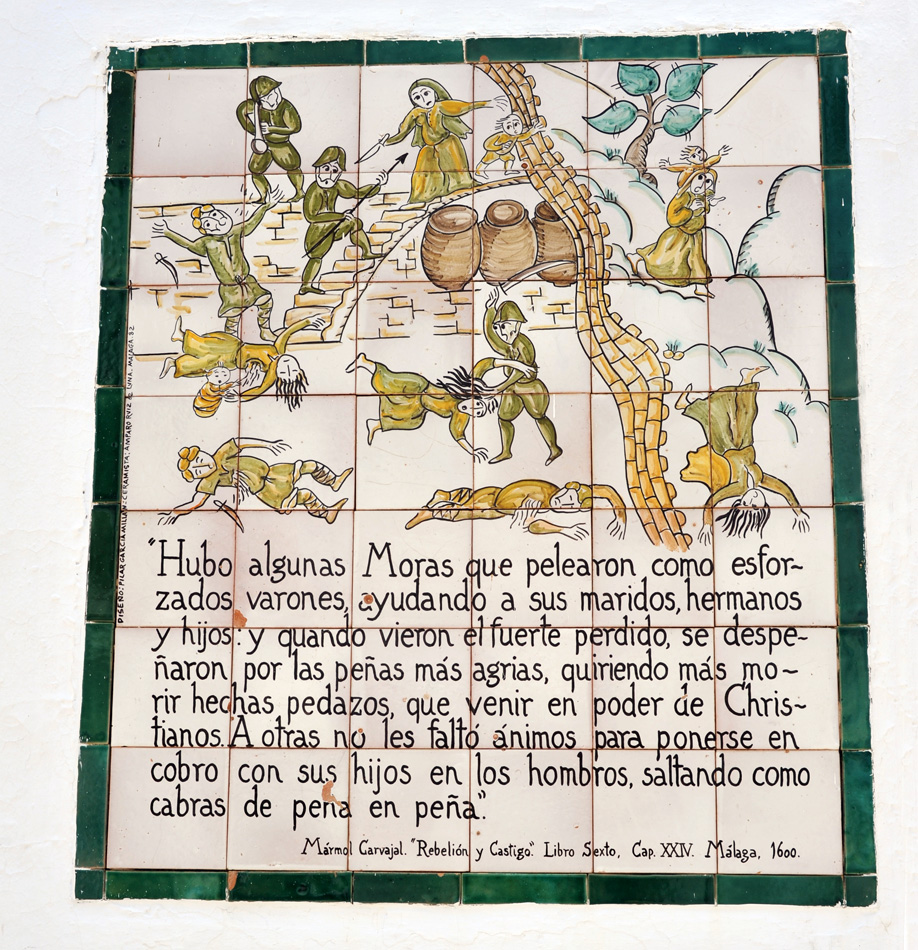 "Hubo algunas Moras que pelearon como esfor-
zados varones, ayudando a sus maridos, hermanos
y hijos: y quando vieron el fuerte perdido, se despe-
ñaron por las peñas más agrias, quiriendo más mo-
rir hechas pedazos, que venir en poder de Chris-
tianos. A otras no les faltó ánimos para ponerse en
cobro con sus hijos en los hombros, saltando como
cabras de peña en peña".
Mármol Carvajal. "Rebelión y Castigo". Libro Sexto, Cap. XXIV. Málaga, 1600.
DISEÑO: PILAR GARCIA MILLAN. CERAMISTA: AMPARO RUIZ DE LUNA. MALAGA. 82